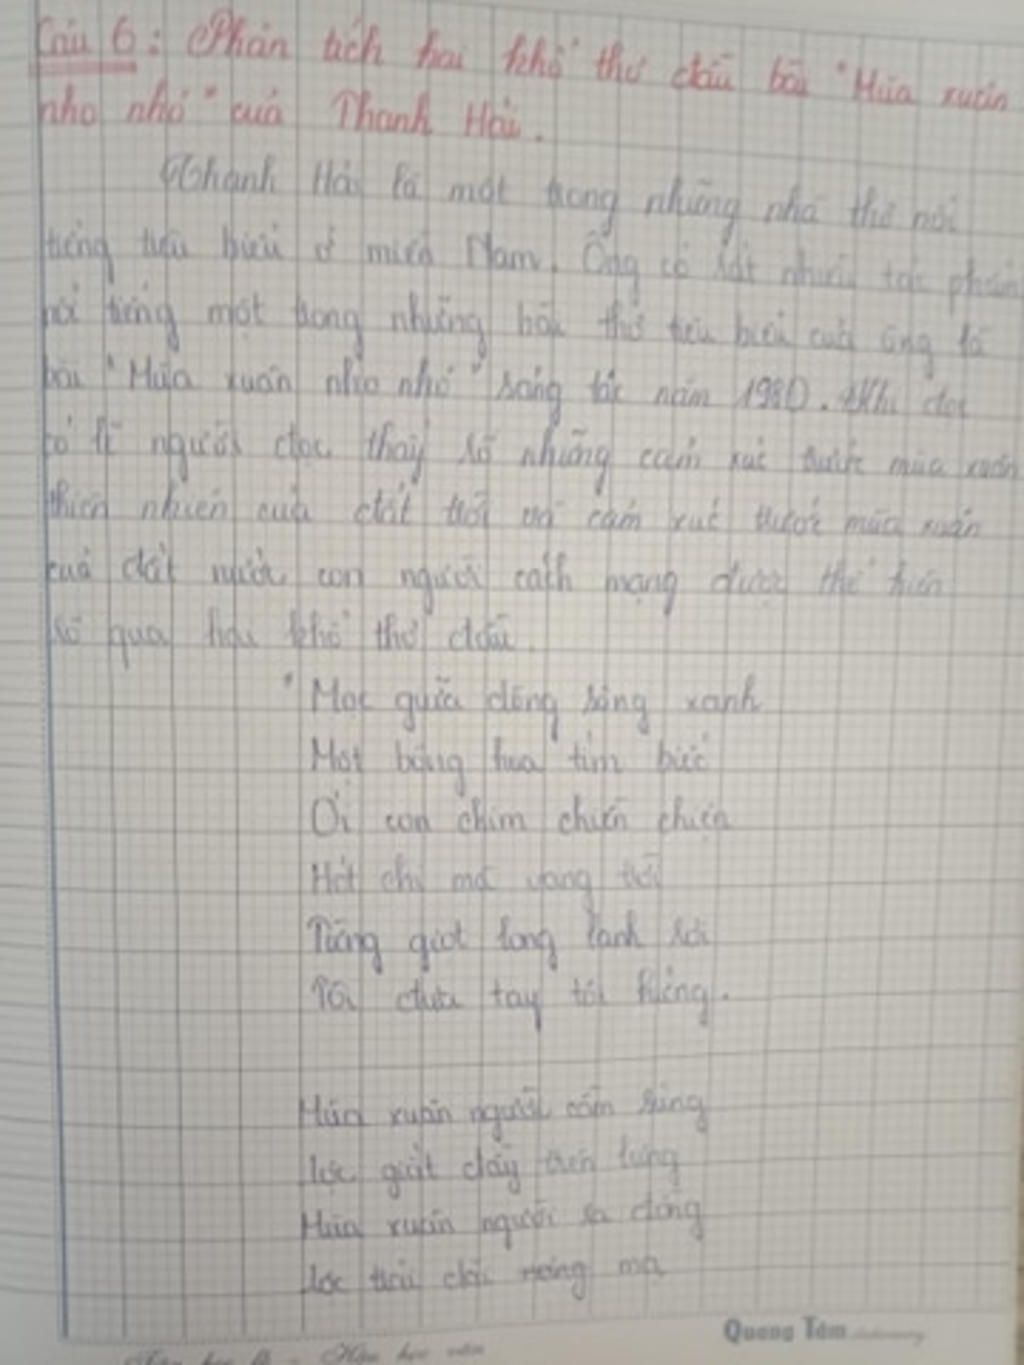 Câu 6: Phân tích hai khổ thơ đầu bài "Mùa xuân
nho nhỏ" của Thanh Hải.
Thanh Hải là một trong những nhà thơ nổi
tiếng tiêu biểu ở miền Nam. Ông có rất nhiều tác phẩm
nổi tiếng một trong những bài thơ tiêu biểu của ông là
bài "Mùa xuân nho nhỏ" sáng tác năm 1980. Khi đọc
có lẽ người đọc thấy rõ những cảm xúc trước mùa xuân
thiên nhiên của đất trời và cảm xúc trước mùa xuân
của đất nước, con người cách mạng được thể hiện
rõ qua hai khổ thơ đầu.
"Mọc giữa dòng sông xanh
Một bông hoa tím biếc
Ơi con chim chiền chiện
Hót chi mà vang trời
Từng giọt long lanh rơi
Tôi đưa tay tôi hứng.
Mùa xuân người cầm súng
Lộc giắt đầy trên lưng
Mùa xuân người ra đồng
Lộc trải dài nương mạ
Quang Tâm